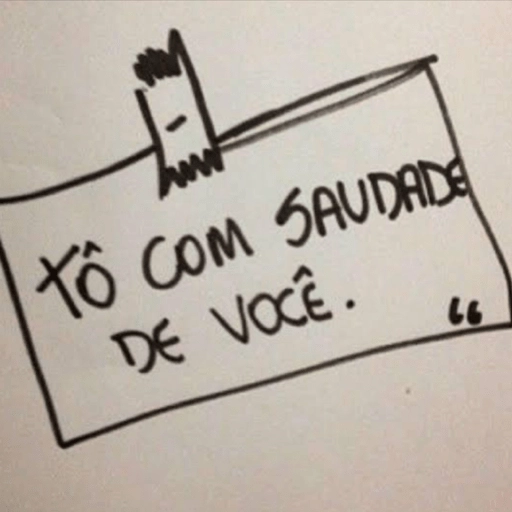 TÔ COM SAUDADE
DE VOCÊ.
“